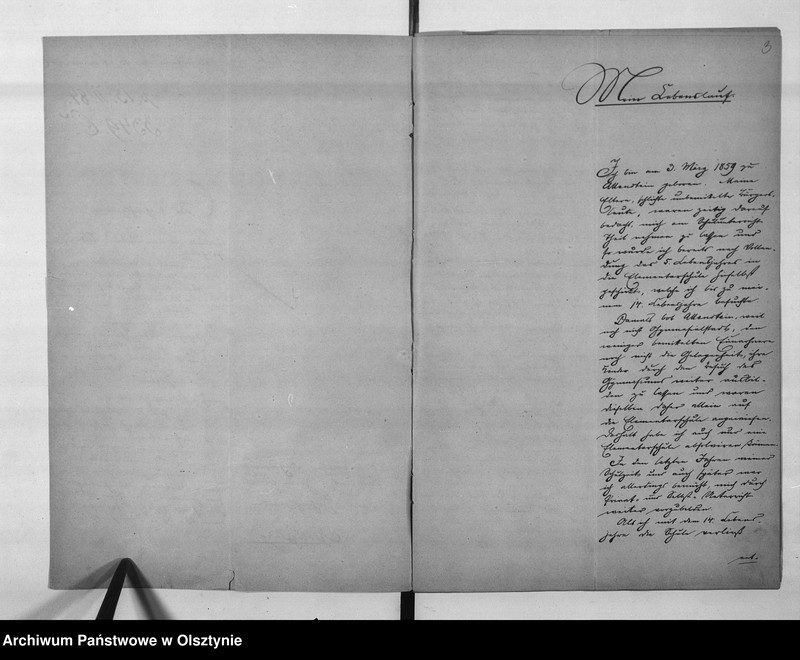 3
Mein Lebenslauf.
Ich bin am 3. März 1859 zu
Allenstein geboren. Meine
Eltern, schlichte unbemittelte Bürgers-
leute, waren zeitig darauf
bedacht, mich am Schulunterricht
Theil nehmen zu lassen und
so wurde ich bereits nach Vollen-
dung des 5. Lebensjahres in
die Elementarschule hierselbst
geschickt, welche ich bis zu mei-
nem 14. Lebensjahre besuchte.
Damals bot Allenstein, weil
noch nicht Gymnasialstadt, den
weniger bemittelten Einwohnern
noch nicht die Gelegenheit, ihre
Kinder durch den Besuch des
Gymnasiums weiter ausbil-
den zu lassen und waren
dieselben daher allein auf
die Elementarschule angewiesen.
Deshalb habe ich auch nur eine
Elementarschule absolviren können.
In den letzten Jahren meiner
Schulzeit und auch später war
ich allerdings bemüht, mich durch
Privat- und Selbst-Unterricht
weiter vorzubilden.
Als ich mit dem 14. Lebens-
jahre die Schule verließ
Archiwum Państwowe w Olsztynie